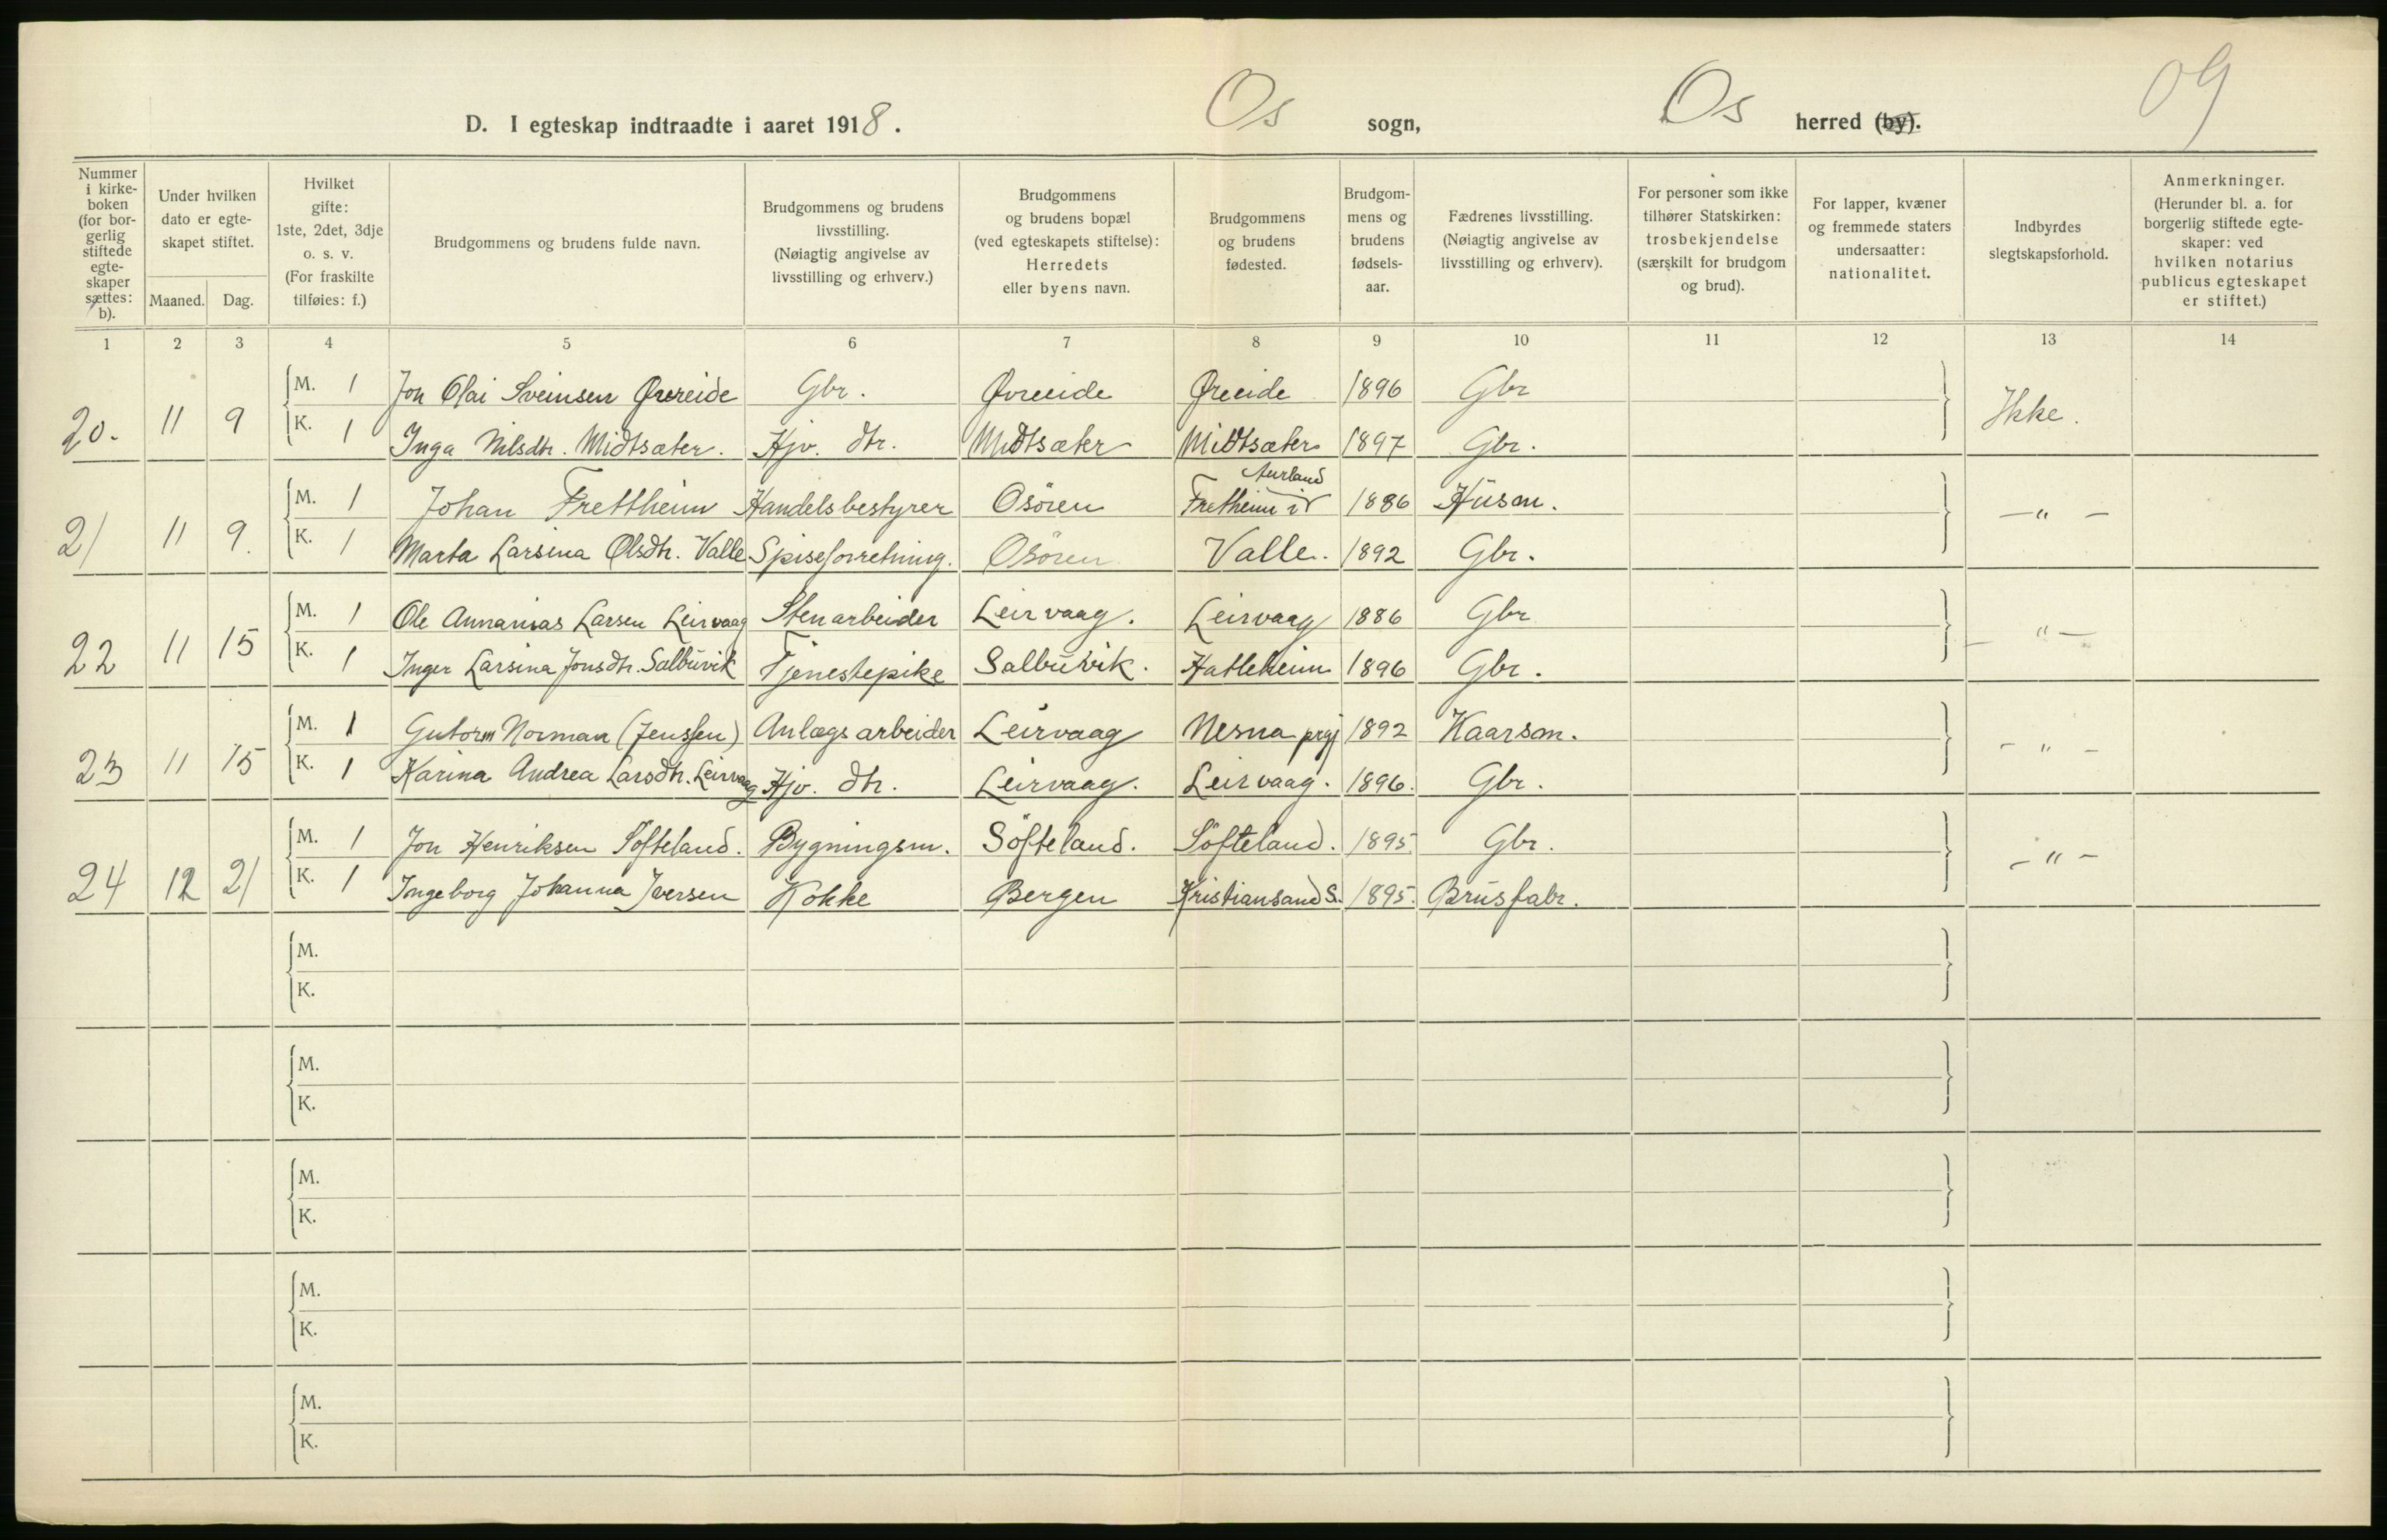 09
D. I egteskap indtraadte i aaret 1918. Os sogn, Os herred (by).
Nummer i kirkeboken (for borgerlig stiftede egteskaper sættes: b).
Under hvilken dato er egteskapet stiftet.
Maaned. Dag.
Hvilket gifte: 1ste, 2det, 3dje o. s. v. (For fraskilte tilføies: f.)
Brudgommens og brudens fulde navn.
Brudgommens og brudens livsstilling. (Nøiagtig angivelse av livsstilling og erhverv.)
Brudgommens og brudens bopæl (ved egteskapets stiftelse): Herredets eller byens navn.
Brudgommens og brudens fødested.
Brudgommens og brudens fødselsaar.
Fædrenes livsstilling. (Nøiagtig angivelse av livsstilling og erhverv).
For personer som ikke tilhører Statskirken: trosbekjendelse (særskilt for brudgom og brud).
For lapper, kvæner og fremmede staters undersaatter: nationalitet.
Indbyrdes slegtskapsforhold.
Anmerkninger. (Herunder bl. a. for borgerlig stiftede egteskaper: ved hvilken notarius publicus egteskapet er stiftet.)
1 2 3 4 5 6 7 8 9 10 11 12 13 14
20. 11 9 M. 1 Jon Olai Sveinsen Øvereide Gbr. Øvreeide Øreeide 1896 Gbr Ikke.
K. 1 Inga Nilsdtr. Midtsæter. Hjv. dtr. Midtsæter Midtsæter 1897 Gbr.
21 11 9. M. 1 Johan Frettheim Handelsbestyrer Osören Fretheim i Aurland 1886 Husm. — " —
K. 1 Marta Larsina Olsdtr. Valle Spiseforretning. Osören Valle. 1892 Gbr.
22 11 15 M. 1 Ole Annanias Larsen Leirvaag Stenarbeider Leirvaag. Leirvaag 1886 Gbr — " —
K. 1 Inger Larsina Jonsdtr. Salbuvik Tjenestepike Salbuvik. Hatleheim 1896 Gbr.
23 11 15 M. 1 Gutorm Norman (Jenssen) Anlægsarbeider Leirvaag Nesna prgj 1892 Kaarsm. - " -
K. 1 Karina Andrea Larsdtr. Leirvaag Hjv. dtr. Leirvaag. Leirvaag. 1896. Gbr.
24 12 21 M. 1 Jon Henriksen Söfteland. Bygningsm. Söfteland. Söfteland. 1895. Gbr. - " -
K. 1 Ingeborg Johanna Iversen Kokke Bergen Kristiansand S. 1895. Brusfabr.
M.
K.
M.
K.
M.
K.
M.
K.
M.
K.